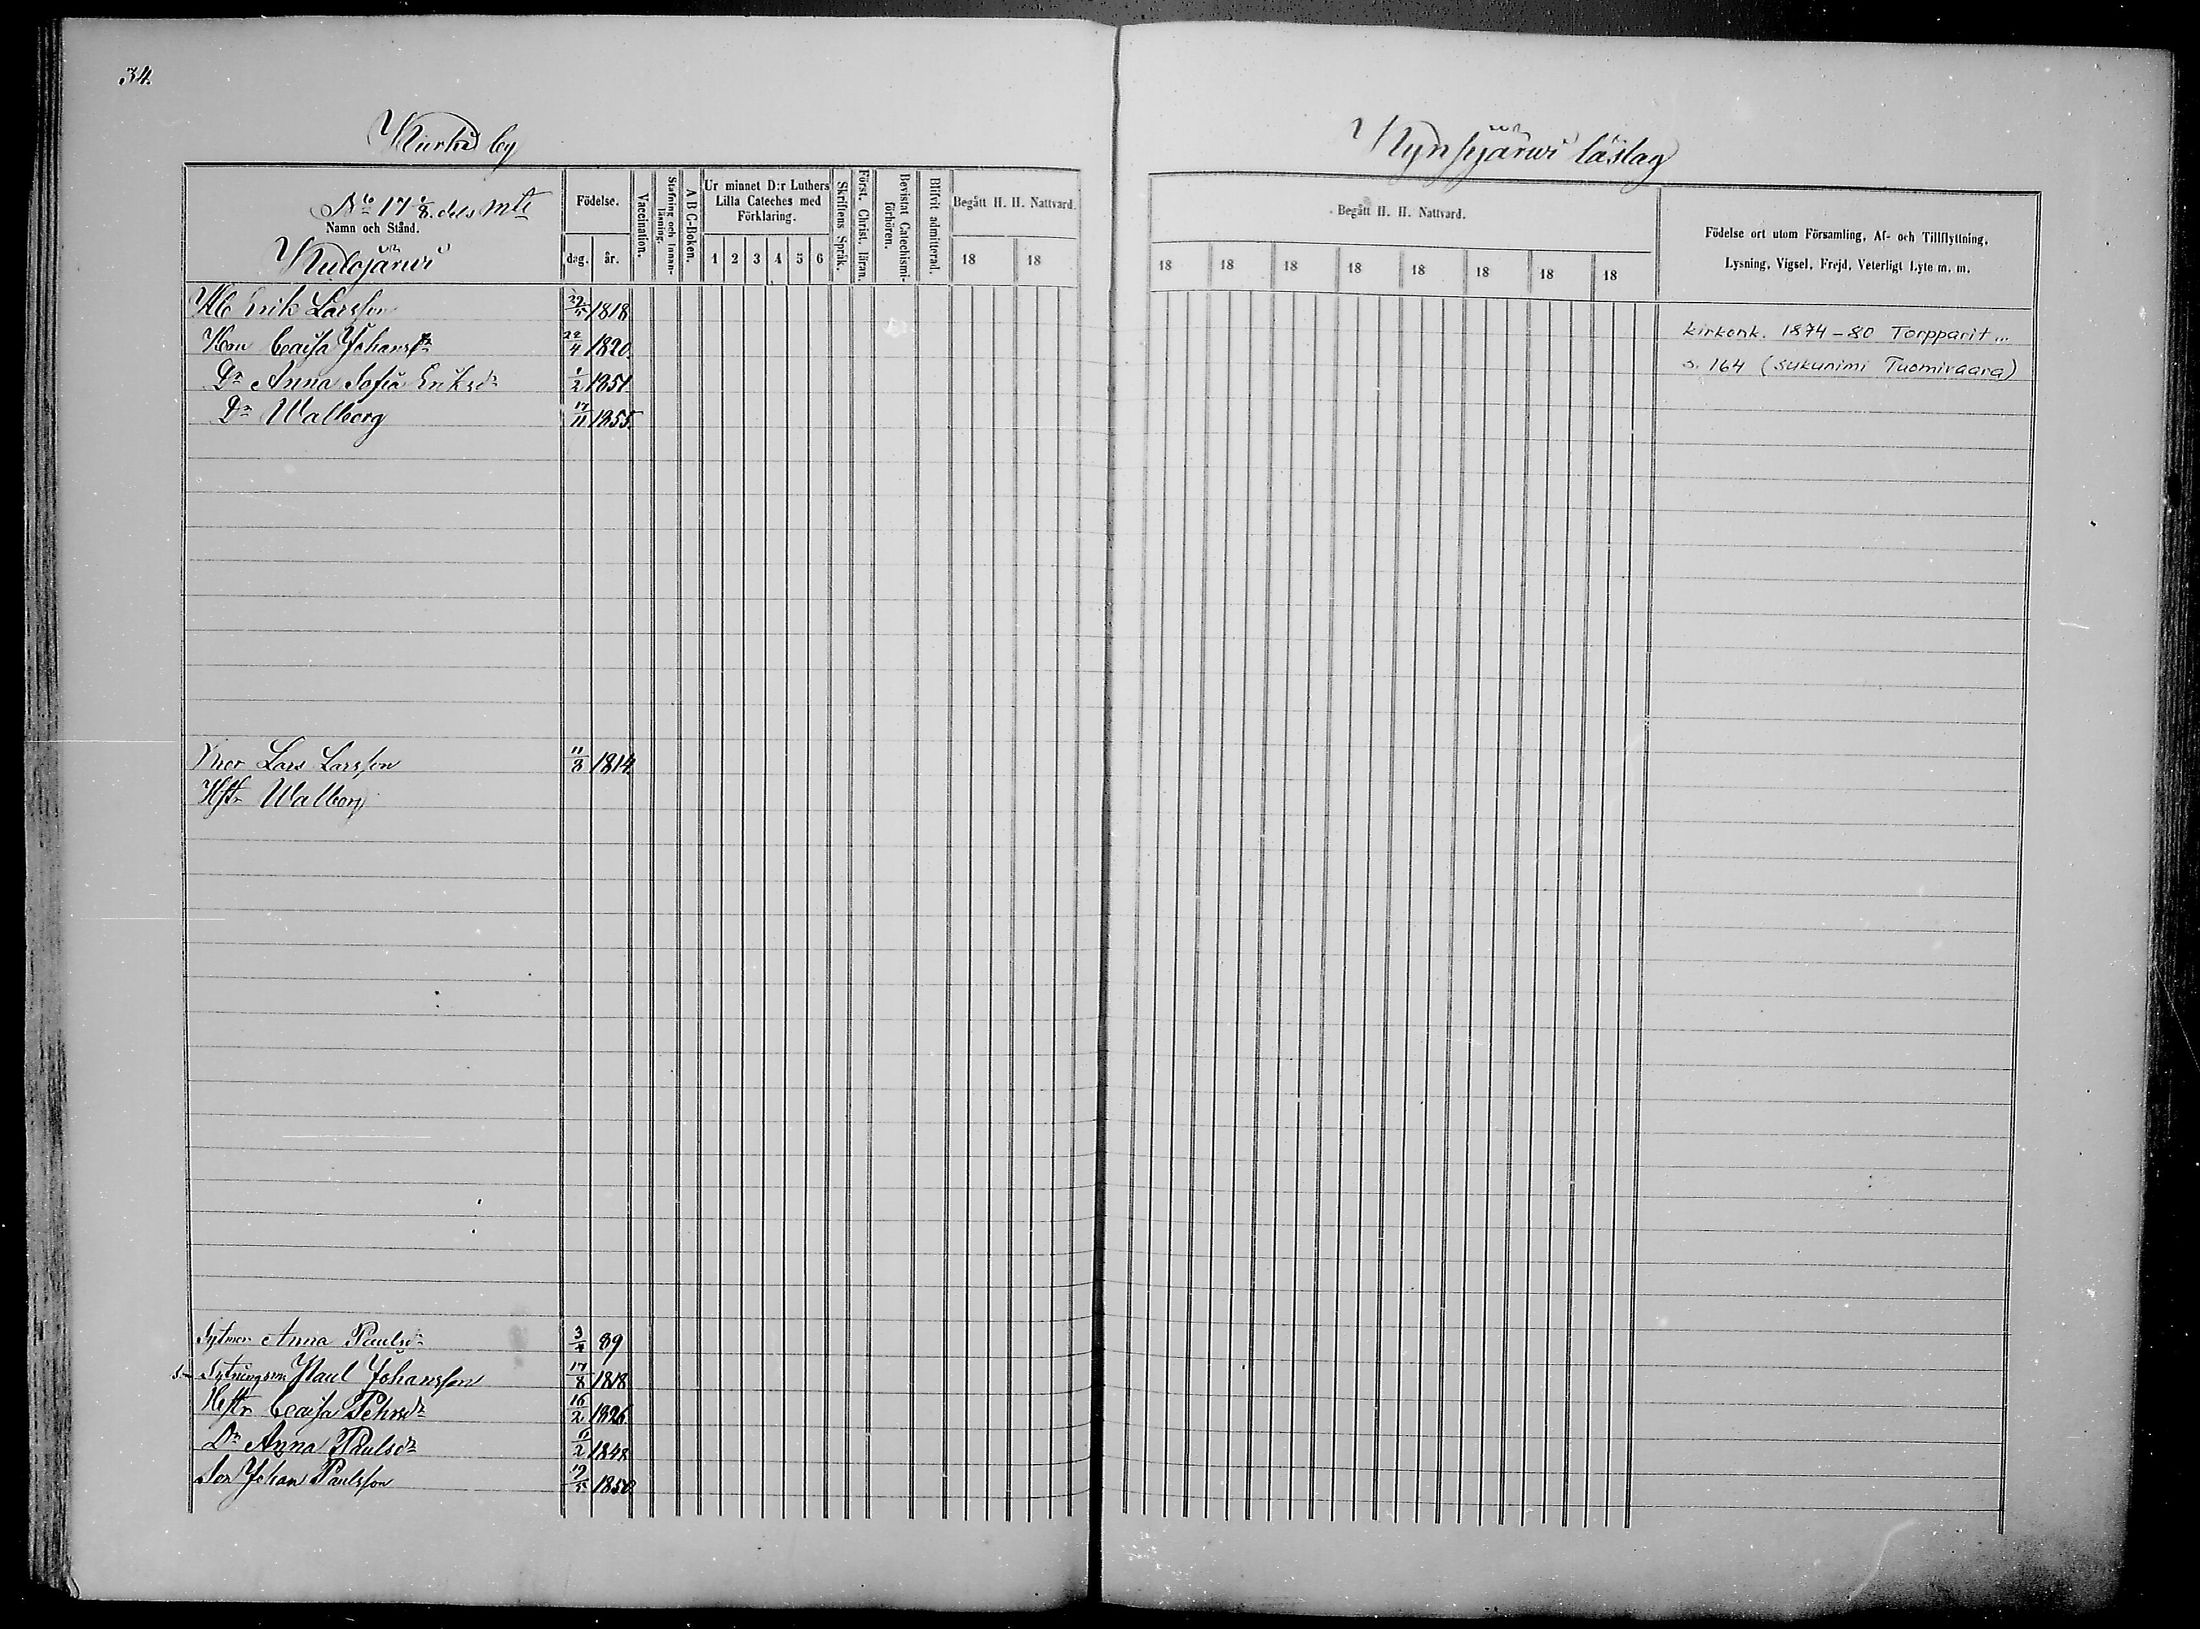 34.
Kurki by
No 17 1/8 dels mtl
Namn och Stånd.
Kulojärwi
Födelse.
dag. år.
Vaccination.
Stafning och Innanläsning.
A B C-Boken.
Ur minnet D:r Luthers Lilla Cateches med Förklaring.
1 2 3 4 5 6
Skriftens Språk.
Först. Christ. läran.
Bevistat Catechismi-förhören.
Blifvit admitterad.
Begått H. H. Nattvard.
18 18
Erik Larsson 29/5 1818
Hon Caisa Johansdr 22/4 1820
Dr Anna Sofia Eriksdr 1/2 1851
Dr Walborg 17/11 1855
Lars Larsson 11/8 1814
Hstr Walborg
Anna Paulsdr 3/4 89
Sytningsm Paul Johansson 17/8 1818
Hstr Caisa Pehrsdr 16/2 1826
Dr Anna Paulsdr 1848
Son Johan Paulsson 19/5 1850
Kynsijärwi läslag
Begått H. H. Nattvard.
18 18 18 18 18 18 18 18
Födelse ort utom Församling, Af- och Tillflyttning,
Lysning, Vigsel, Frejd, Veterligt Lyte m. m.
kirkonk. 1874-80 Torpparit...
s. 164 (sukunimi Tuomivaara)